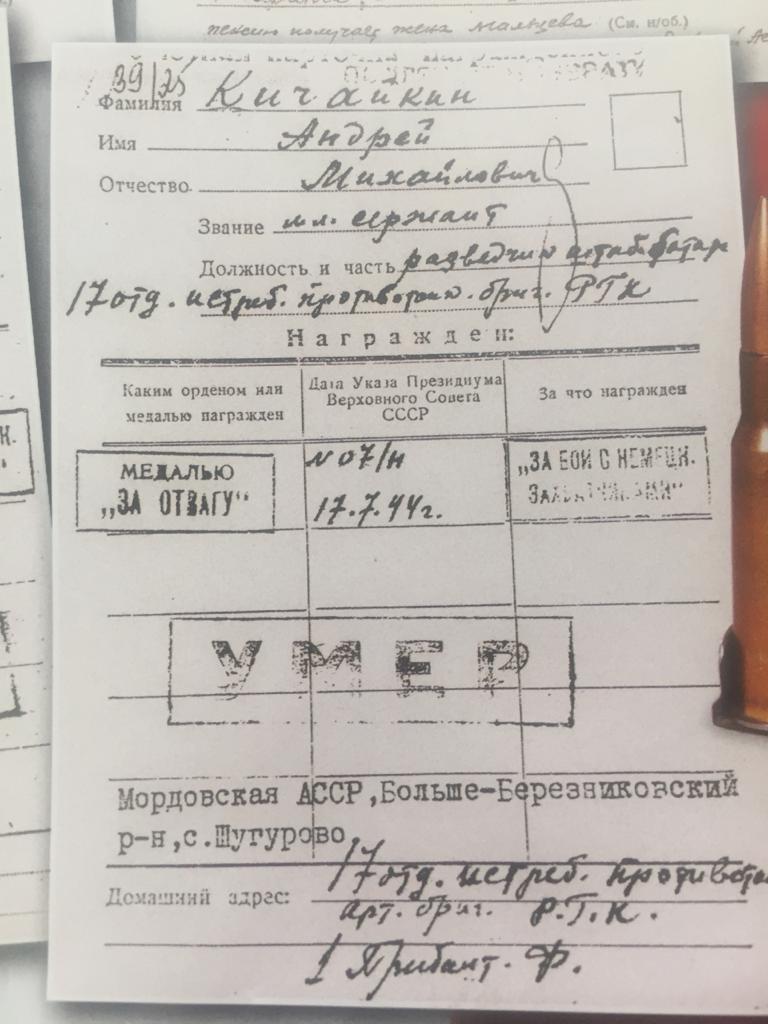 пенсию получает жена Мальцева (См. н/об.)
39/75
Фамилия Кичайкин
Имя Андрей
Отчество Михайлович
Звание мл. сержант
Должность и часть разведчик
17 отд. истреб. противотанк. бриг. РГК
Награжден:
Каким орденом или медалью награжден
Дата Указа Президиума Верховного Совета СССР
За что награжден
МЕДАЛЬЮ
„ЗА ОТВАГУ“
№ 07/н
17.7.44г.
„ЗА БОИ С НЕМЕЦК.
ЗАХВАТЧИКАМИ“
УМЕР
Мордовская АССР,Больше-Березниковский
р-н,с.Шугурово,
17 отд. истреб. противота
Домашний адрес:
арт. бриг. Р.Г.К.
1 Прибалт. Ф.